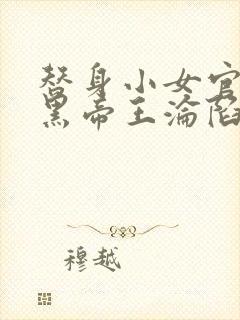 替身小女官
黑帝王淪陷
穆越